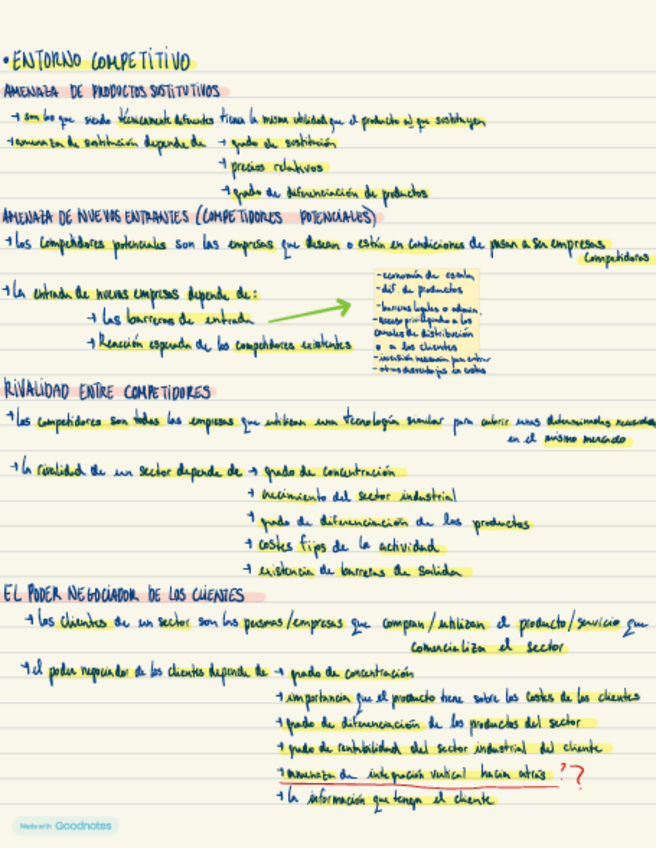 • ENTORNO COMPETITIVO
AMENAZA DE PRODUCTOS SUSTITUTIVOS
→ son los que siendo técnicamente diferentes tienen la misma utilidad que el producto al que sustituyen
→ amenaza de sustitución depende de → grado de sustitución
→ precios relativos
→ grado de diferenciación de productos
AMENAZA DE NUEVOS ENTRANTES (COMPETIDORES POTENCIALES)
→ Los competidores potenciales son las empresas que desean o están en condiciones de pasar a ser empresas
competidoras
→ La entrada de nuevas empresas depende de:
→ Las barreras de entrada
→ Reacción esperada de los competidores existentes
- economía de escala
- dif. de productos
- barreras legales o admin.
- acceso privilegiado a los
canales de distribución
o a los clientes
- inversión necesaria para entrar
- otras desventajas en costes
RIVALIDAD ENTRE COMPETIDORES
→ Los competidores son todas las empresas que utilizan una tecnología similar para cubrir unas determinadas necesidades
en el mismo mercado
→ La rivalidad de un sector depende de → grado de concentración
→ crecimiento del sector industrial
→ grado de diferenciación de los productos
→ costes fijos de la actividad
→ existencia de barreras de salida
EL PODER NEGOCIADOR DE LOS CLIENTES
→ Los clientes de un sector son las personas/empresas que compran/utilizan el producto/servicio que
comercializa el sector
→ el poder negociador de los clientes depende de → grado de concentración
→ importancia que el producto tiene sobre los costes de los clientes
→ grado de diferenciación de los productos del sector
→ grado de rentabilidad del sector industrial del cliente
→ amenaza de integración vertical hacia atrás ??
→ la información que tenga el cliente
Made with Goodnotes